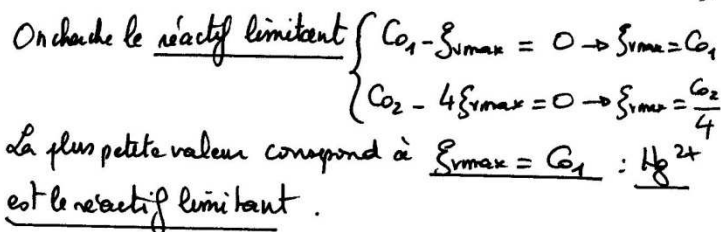 On cherche le réactif limitant { C01 - ξvmax = 0 → ξvmax = C01
C02 - 4ξvmax = 0 → ξvmax = C02/4
La plus petite valeur correspond à ξvmax = C01 : Hg2+
est le réactif limitant.